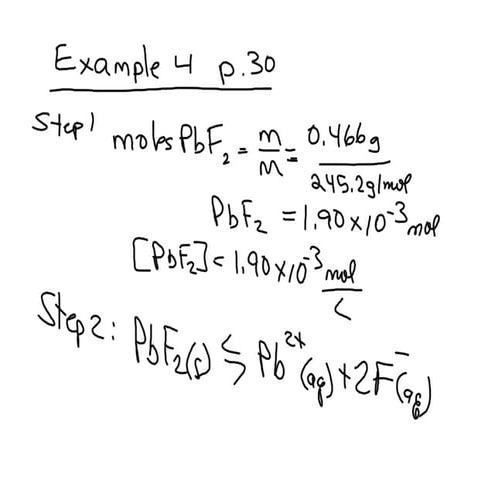 Example 4 p.30
Step 1 moles PbF₂ = m/M = 0.466g/245.2g/mol
PbF₂ = 1.90×10⁻³ mol
[PbF₂] = 1.90×10⁻³ mol/L
Step 2: PbF₂(s) ⇆ Pb²⁺(aq) + 2F⁻(aq)